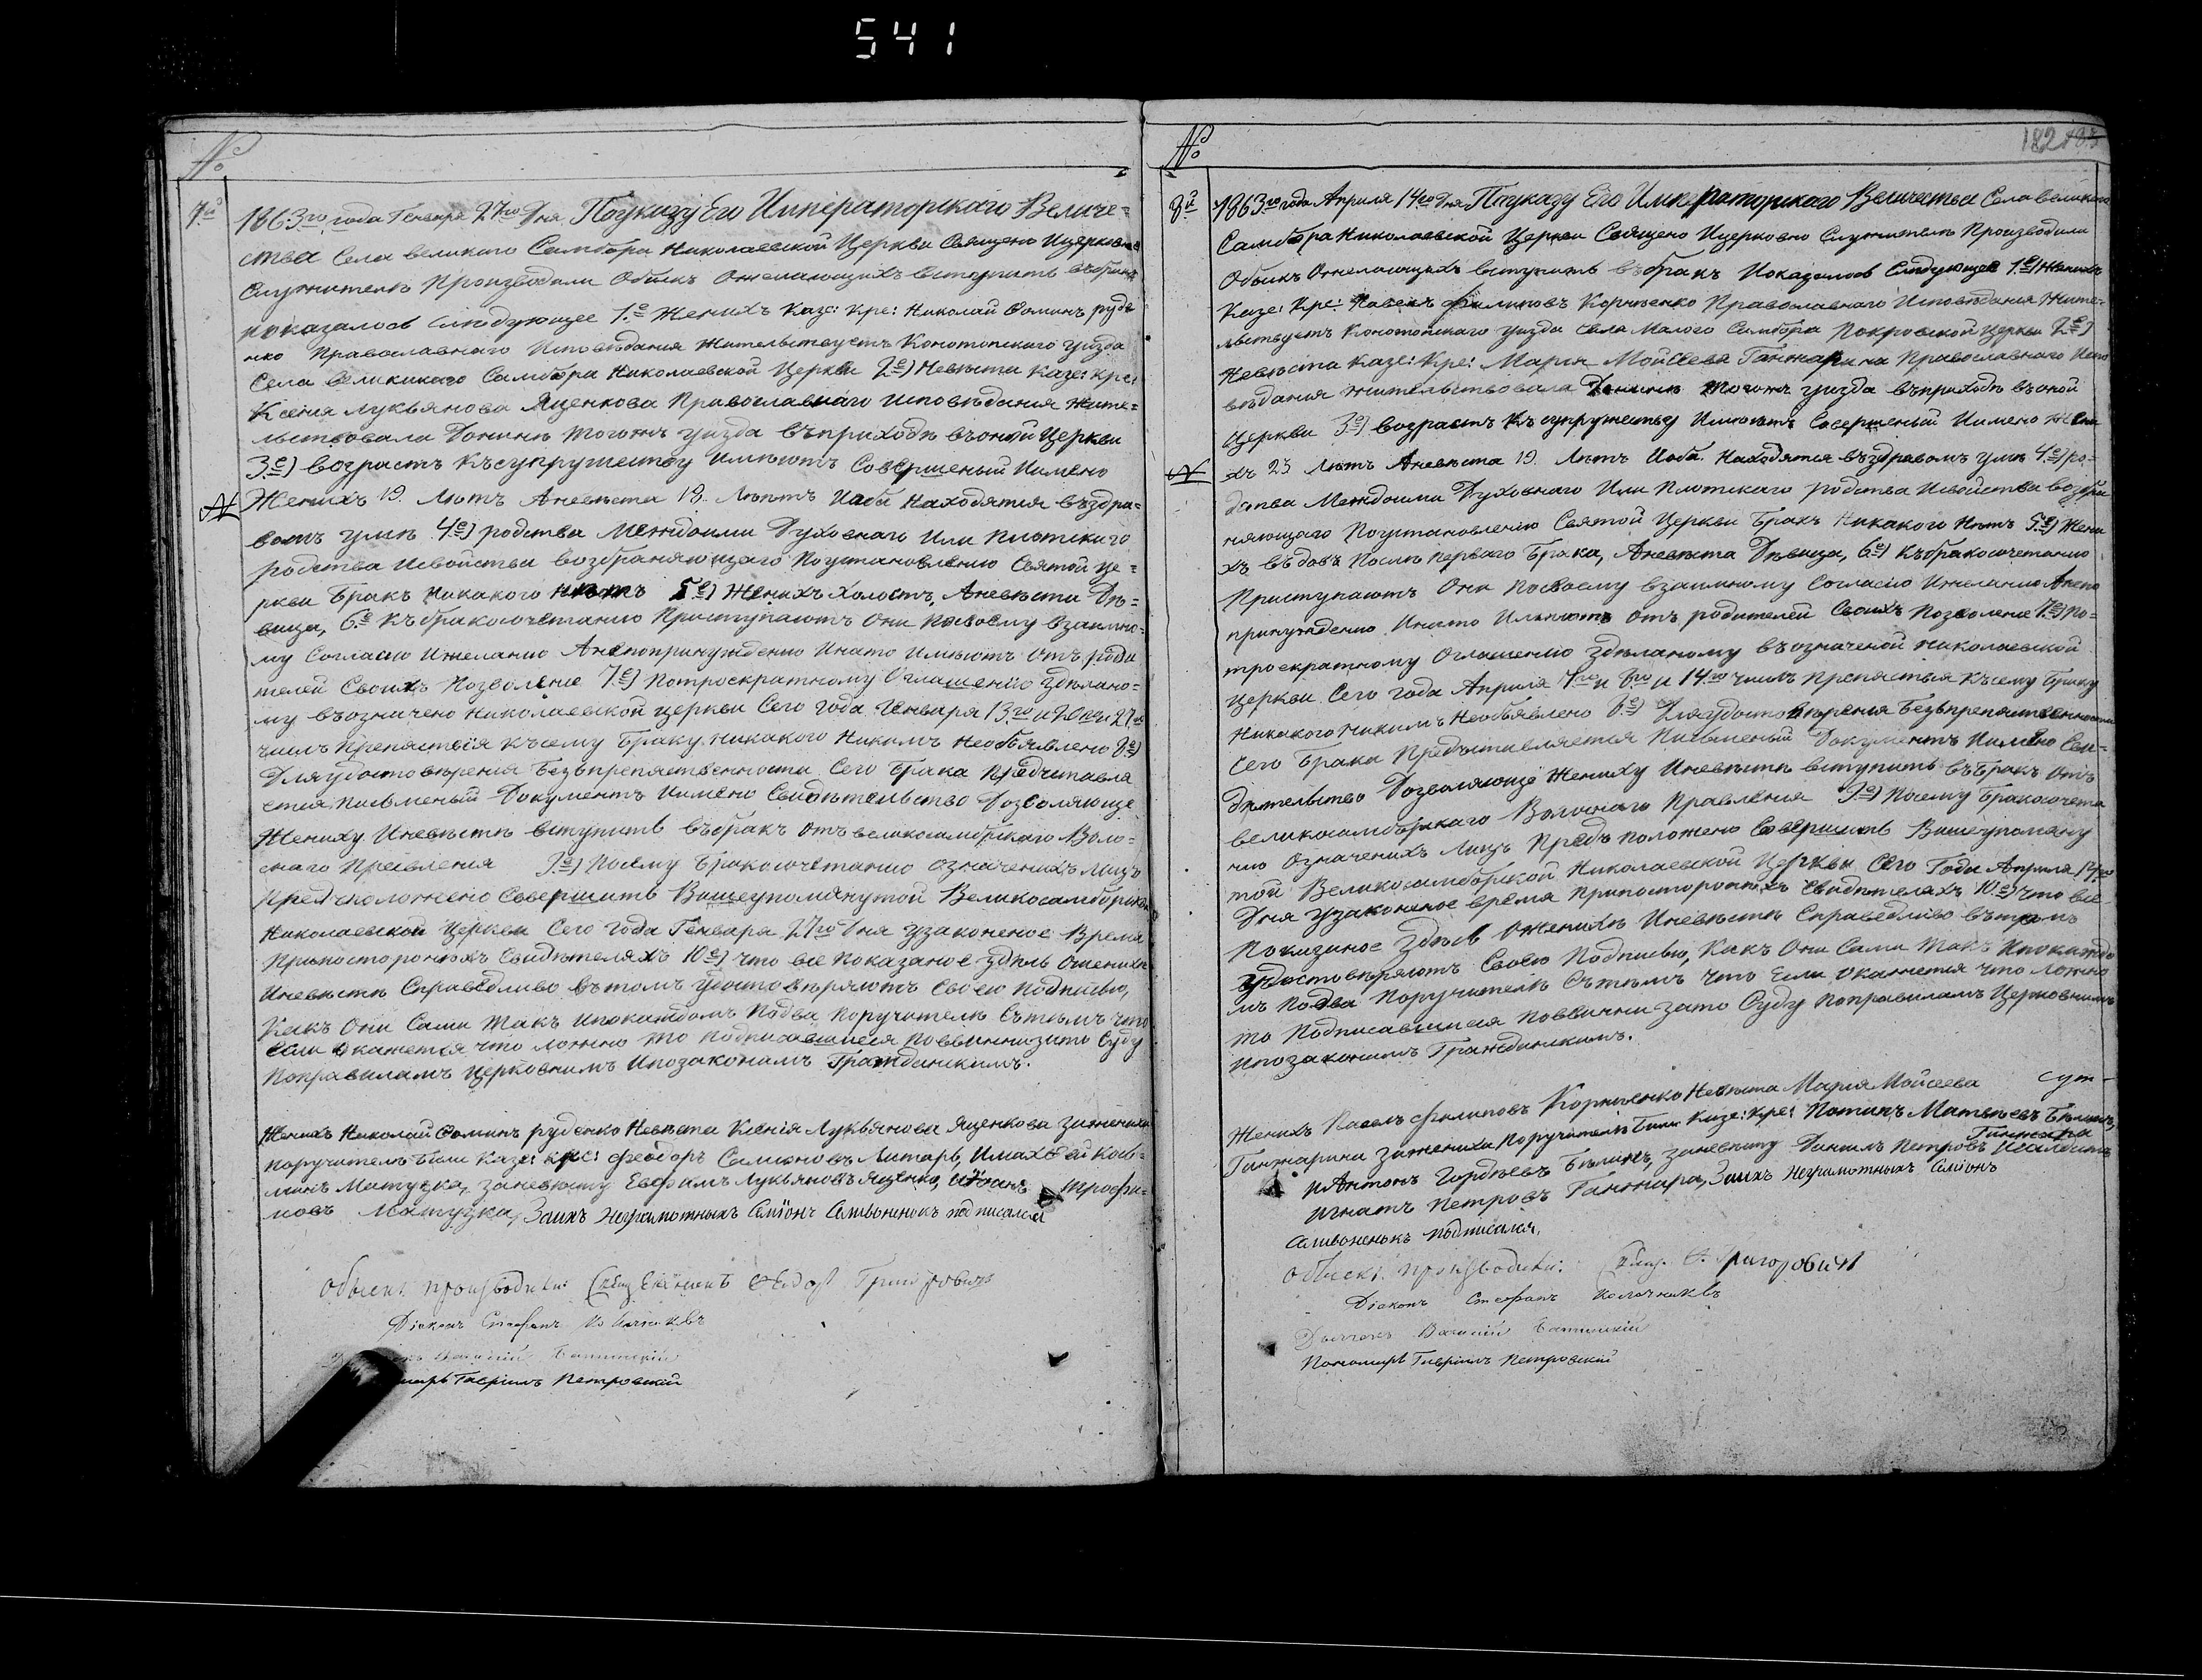 541
№
7й
1863го года Генваря 27го Дня Поуказу Его Императорскаго Величе=
ства Села великого Самбора Николаевской Церкви Священо Ицерковно
Служители Производили Обыскъ Ожелающихъ вступить въбракъ
показалось слюдующее 1.е Женихъ Казе: Кре: Николай Фоминъ руде
нко Православнаго Исповѣдания Жительствуетъ Конотопскаго уизда
Села великикаго Самбора Николаевской Церкви 2е) Невѣста Казе: Кре:
Ксения Лукъянова Яценкова Православнаго исповѣдания жите=
льствовала Донинѣ тогожъ уизда въприходѣ въоной Церкви
3е) возрастъ Късупружеству Имѣютъ Совершеный Имено
Женихъ 19. Лѣтъ Аневѣста 18. Лѣтъ Иоба Находятся въздра=
вомъ умѣ 4е) родства Междоими Духовнаго Или Плотскаго
родства Исвойства возбраняющаго Поустановлению Святой Це=
ркви Бракъ Никакого нѣтъ 5е) Женихъ Холостъ, Аневѣста Дѣ=
вица, 6.е Къбракосочетанию Приступаютъ Они Посвоему Взаимно=
му Согласию Ижеланию Анепопринуждению Инато Имѣютъ Отъ роди
телей Своихъ Позволение 7е) Потроекратному Оглашению Здѣлано=
му въозначено Николаевской церкви Сего года Генваря 13го и 20го и 27го
числъ Препяствія Късему Браку Никакого Никимъ Необъявлено 8е)
Для удостовѣрения Безъпрепяственности Сего Брака Предчитавля
ется Писменый Документъ Имено Свидѣтельство Дозволяюще
Жениху Иневѣстѣ вступить въбракъ Отъ великосамбрскаго Воло=
снаго Превления 9е) Посему Бракосочетанию означенихъ Лицъ
Предположено Совершить Вишеупомянутой Великосамборской
Николаевской Церкви Сего года Генваря 27го Дня узаконеное Время
Припостороннихъ Свидѣтеляхъ 10е) что все показаное здѣсь Оженихѣ
Иневѣстѣ Справедливо вътомъ удостовѣряютъ Своею подписью,
Какъ Они Сами такъ Ипокаждомъ Подва поручителѣ Сътѣмъ что
если Окажется что ложно то подписавшиеся повиннизато Суду
Поправиламъ церковнимъ Ипозаконамъ Гражданскимъ.
Женихъ Николай Фоминъ руденко Невѣста Ксенія Лукъянова Яценкова Зажениха
Поручителѣ Били Казе: Кре: Феодоръ Симоновъ Литарь, Иматвей Кось=
минъ Матузка, Заневѣсту Евфимъ Лукъяновъ Яценко, Иоанъ Трофи=
мовъ Матузка, Заихъ Неграмотныхъ Симіонъ Сильвоненокъ подписался
Обыскъ производили: Священникъ Феодоръ Григоровичъ
Діаконъ Стефанъ
Василій
Пономарь Гавріилъ Петровскій
№
182
8й
1863го года Априля 14го Дня Поуказу Его Императорскаго Величества Села великаго
Самбора Николаевской Церкви Священо Ицерковно Служителѣ Производили
Обыскъ Ожелающихъ вступить въбракъ Показалось Слюдующее 1.е) Женихъ
Казе: Кре: Павелъ Филиповъ Корниенко Православнаго Исповѣдания Жите=
льствуетъ Конотопскаго уизда Села Малого Самбора Покровской Церкви 2е)
Невѣста Казе: Кре: Мария Мойсеева Ганжарина Православнаго Испо
вѣдания жительствовала Донинѣ Тогожъ уизда въприходѣ въоной
Церкви 3е) возрастъ Късупружеству Имѣютъ Совершеный Имено Жени
хъ 23 Лѣтъ Аневѣста 19. Лѣтъ Иоба Находятся въздравомъ умѣ 4е) ро=
дства Междоими Духовнаго Или Плотскаго родства Исвойства возбра
няющаго Поустановлению Святой Церкви Бракъ Никакого Нѣтъ 5е) Жени
хъ въдовъ Послѣ Перваго Брака, Аневѣста Дѣвица, 6е) Къбракосочетанию
Приступаютъ Они Посвоему взаимному Согласію Ижеланию Анепо
принуждению Инато Имѣютъ Отъ родителей Своихъ Позволение 7е) По=
троекратному Оглашению Здѣланому въозначеной Николаевской
Церкви Сего года Априля и и 14го числъ Препяствия Късему Браку
Никакого Никимъ Необъявлено 8е) Для удостовѣрения Безъпрепятственности
Сего Брака Предъставляется Письменый Документъ Имено Сви=
дѣтельство Дозволяюще Жениху Иневѣстѣ вступить въБракъ Отъ
Великосамборскаго Волоснаго Правления 9е) Посему Бракосочета
нию Означенихъ Лицъ Предъположено Совершить Вишеупомяну
той Великосамборской Николаевской Церкви Сего Года Априля 14го
Дня узаконеное время Припостороннихъ Свидѣтеляхъ 10е) что все
Показаное Здѣсь Оженихѣ Иневѣстѣ Справедливо вътомъ
удостовѣряютъ Своею Подписью, Какъ Они Сами такъ Ипокаждо
мъ Подва Поручителѣ Сътѣмъ Что Если Окажется что ложно
то Подписавшиеся повинни зато Суду Поправиламъ Церковнимъ
Ипозаконамъ Гражданскимъ.
Женихъ Павелъ Филиповъ Корниенко Невѣста Мария Мойсеева
Ганжарина Зажениха Поручителѣ Били Казе: Кре: Потапъ Матвѣевъ Бѣликъ,
ИАнтонъ Гордѣевъ Бѣликъ, заневѣсту Данилъ Петровъ Ганжара
Игнатъ Петровъ Ганжара, Заихъ Неграмотныхъ Симіонъ
Сильвоненокъ Подписался,
Обыскъ производили: Свящ. Ф. Григоровичъ
Діаконъ Стефанъ
Дьячокъ Василій
Пономарь Гавріилъ Петровскій